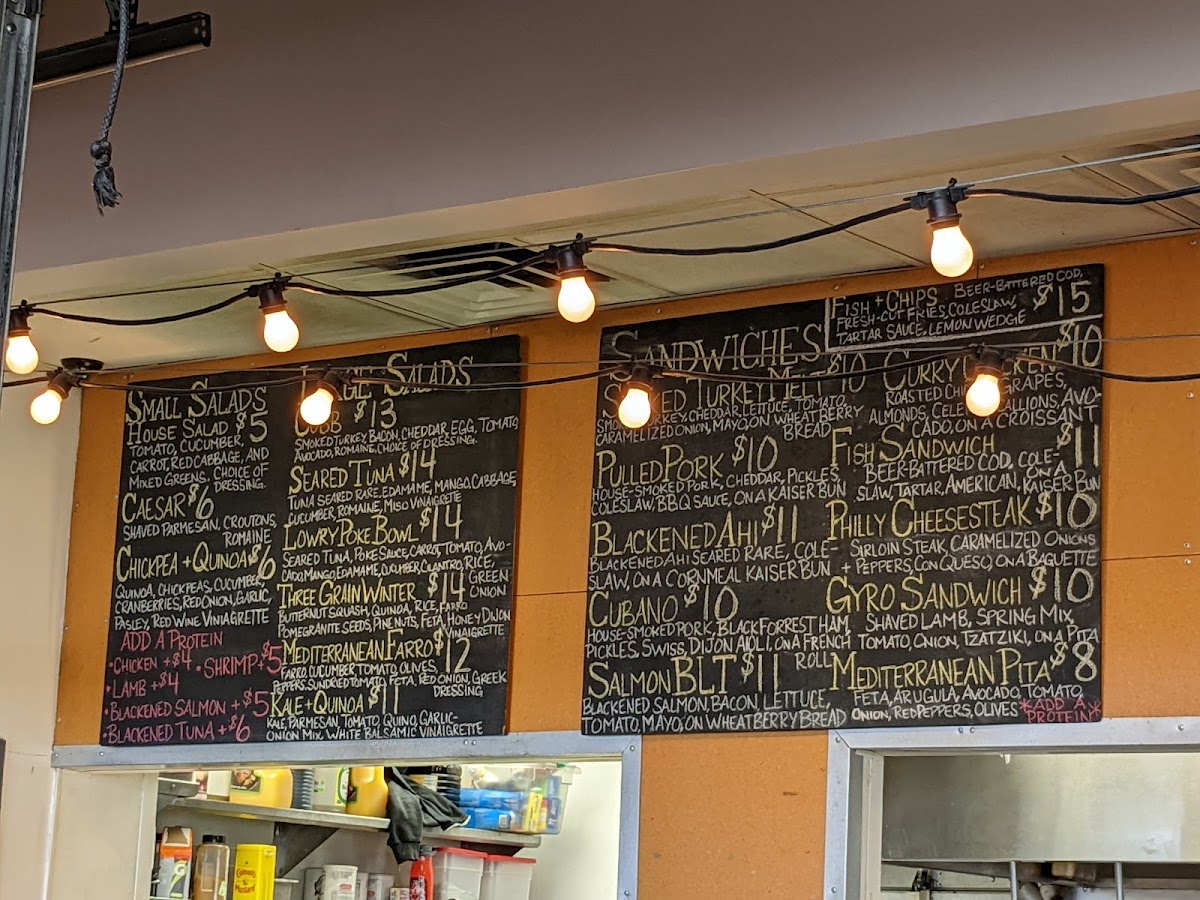 SMALL SALADS
HOUSE SALAD $5
TOMATO, CUCUMBER,
CARROT, RED CABBAGE, AND
MIXED GREENS. CHOICE OF
DRESSING.
CAESAR $6
SHAVED PARMESAN, CROUTONS,
ROMAINE
CHICKPEA + QUINOA $6
QUINOA, CHICKPEAS, CUCUMBER,
CRANBERRIES, RED ONION, GARLIC,
PASLEY, RED WINE VINIAGRETTE
ADD A PROTEIN
• CHICKEN + $4 • SHRIMP + $5
• LAMB + $4
• BLACKENED SALMON + $5
• BLACKENED TUNA + $6
SALADS
COBB $13
SMOKED TURKEY, BACON, CHEDDAR, EGG, TOMATO
AVOCADO, ROMAINE, CHOICE OF DRESSING.
SEARED TUNA $14
TUNA SEARED RARE, EDAMAME, MANGO, CABBAGE
CUCUMBER, ROMAINE, MISO VINAIGRETTE
LOWRY POKE BOWL $14
SEARED TUNA, POKE SAUCE, CARROT, TOMATO, AVO-
CADO, MANGO, EDAMAME, CUCUMBER, CILANTRO, RICE,
GREEN
ONION
THREE GRAIN WINTER $14
BUTTERNUT SQUASH, QUINOA, RICE, FARRO
POMEGRANITE SEEDS, PINE NUTS, FETA, HONEY DIJON
VINAIGRETTE
MEDITERRANEAN FARRO $12
FARRO, CUCUMBER, TOMATO, OLIVES,
PEPPERS, SUNDRIED TOMATO, FETA, RED ONION, GREEK
DRESSING
KALE + QUINOA $11
KALE, PARMESAN, TOMATO, QUINO, GARLIC-
ONION MIX, WHITE BALSAMIC VINAIGRETTE
SANDWICHES
TURKEY MELT $10
TURKEY, CHEDDAR, LETTUCE, TOMATO,
CARAMELIZED ONION, MAYO, ON WHEAT BERRY
BREAD
PULLED PORK $10
HOUSE-SMOKED PORK, CHEDDAR, PICKLES,
COLESLAW, BBQ SAUCE, ON A KAISER BUN
BLACKENED AHI $11
BLACKENED AHI SEARED RARE, COLE-
SLAW, ON A CORNMEAL KAISER BUN
CUBANO $10
HOUSE-SMOKED PORK, BLACK FORREST HAM,
PICKLES, SWISS, DIJON AIOLI, ON A FRENCH
ROLL
SALMON BLT $11
BLACKENED SALMON, BACON, LETTUCE,
TOMATO, MAYO, ON WHEAT BERRY BREAD
FISH + CHIPS BEER-BATTERED COD,
FRESH-CUT FRIES, COLESLAW, $15
TARTAR SAUCE, LEMON WEDGE
CURRY CHICKEN $10
ROASTED GRAPES,
ALMONDS, AVO-
CADO, ON A CROISSANT
FISH SANDWICH $11
BEER-BATTERED COD, COLE-
SLAW, TARTAR, AMERICAN, ON A
KAISER BUN
PHILLY CHEESESTEAK $10
SIRLOIN STEAK, CARAMELIZED ONIONS
+ PEPPERS, CON QUESO, ON A BAGUETTE
GYRO SANDWICH $10
SHAVED LAMB, SPRING MIX,
TOMATO, ONION, TZATZIKI, ON A PITA
MEDITERRANEAN PITA $8
FETA, ARUGULA, AVOCADO, TOMATO,
ONION, RED PEPPERS, OLIVES *ADD A*
PROTEIN